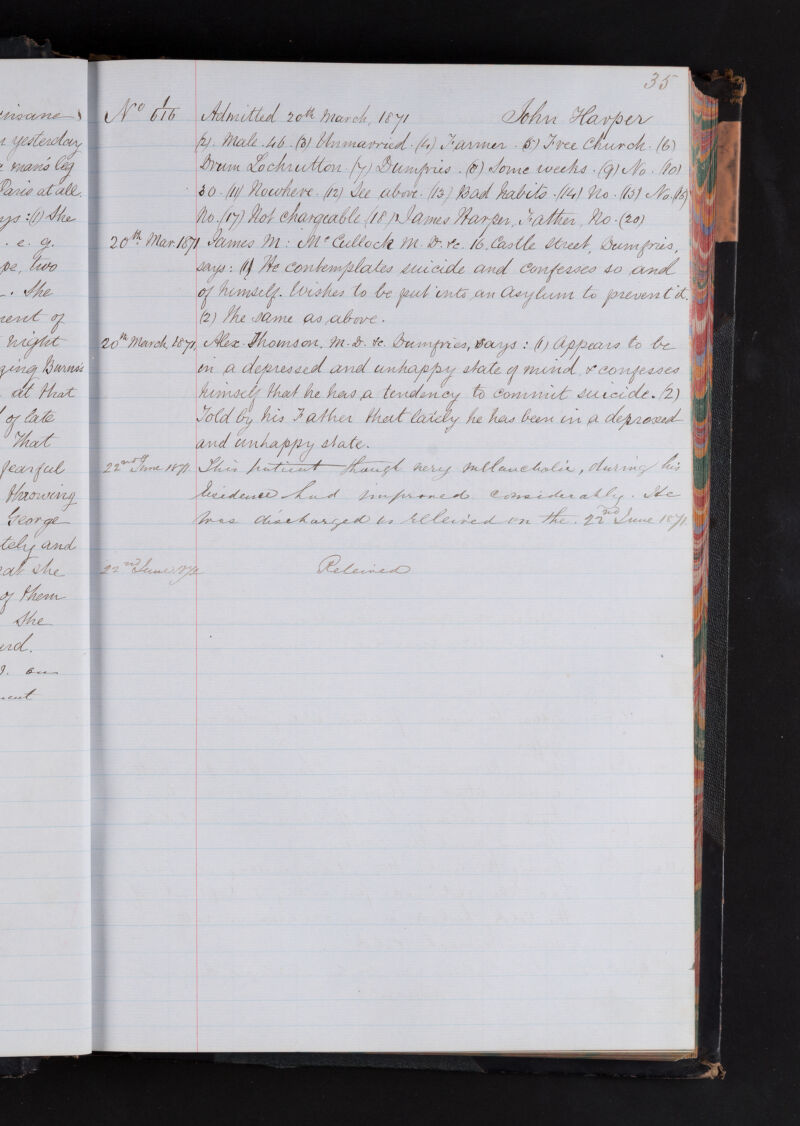 35
insane
yesterday
man's leg
Paris at all.
says: (1) She
. e. g.
two
. She
ment of
night
ging Burns's
at that
of late
That
fearful
throwing
George
tely and
at she
of them
She
ard.
No 1/616 Admitted 20th March, 1871 John Harper
(2). Male. 46. (3) Unmarried. (4) Farmer. (5) Free Church. (6)
Drum Lochrutton (7) Dumfries. (8) Some weeks. (9) No. (10)
30. (11) Nowhere. (12) See above. (13) Bad habits. (14) No. (15) No. (16)
No. (17) Not chargeable (18) James Harper, Father, No. (20)
20th Mar. 1871 James M: McCullock M.D. &c. 16, Castle Street, Dumfries,
says: (1) He contemplates suicide and confesses so, and
of himself. Wishes to be put into an Asylum to prevent it.
(2) The same as above.
20th March 1871, Alex. Thomson, M.D. &c. Dumfries, says: (1) Appears to be
in a depressed and unhappy state of mind & confesses
himself that he has a tendency to commit suicide. (2)
Told by his Father that lately he has been in a depressed
and unhappy state.
22nd June 1871. This patient though very melancholic, during his
residence had improved considerably. He
was discharged as relieved on the 22nd June 1871.
22nd June 1871 Relieved